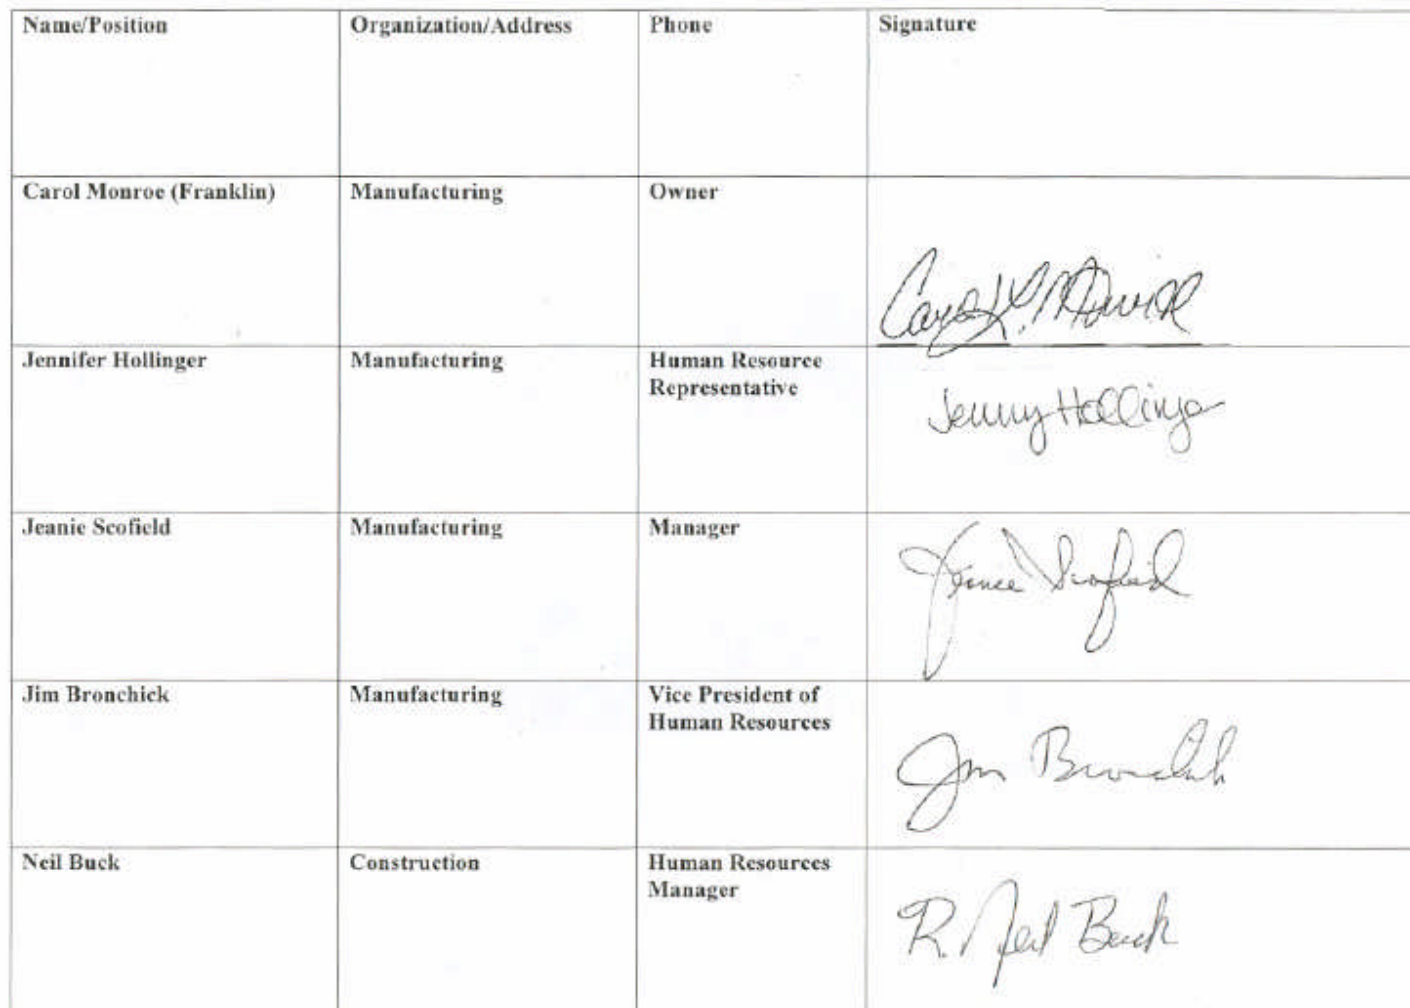 Name/Position Organization/Address Phone Signature
Carol Monroe (Franklin) Manufacturing Owner
Jennifer Hollinger Manufacturing Human Resource
Representative
Jenny Hollinger
Jeanie Scofield Manufacturing Manager
Jeanie Scofield
Jim Bronchick Manufacturing Vice President of
Human Resources
Jim Bronchick
Neil Buck Construction Human Resources
Manager
R. Neil Buck